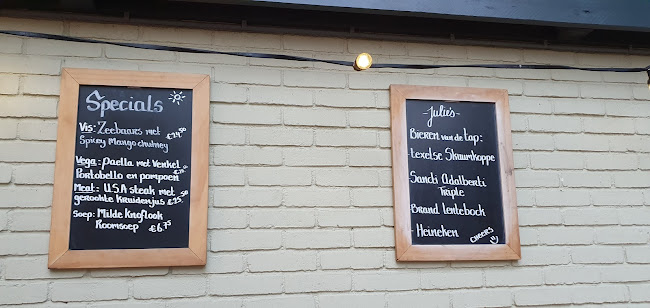 Specials
Vis: Zeebaars met
Spicey Mango chutney
Vega: Paella met Venkel
Portobello en pompoen
Meat: U.S.A steak met
gerookte Kruidenjus €25,50
Soep: Milde Knoflook
Roomsoep €6,75
-Julie's-
Bieren van de tap:
-Texelse Skuumkoppe
-Sancti Adalberti
Triple
-Brand lentebock
-Heineken
CHEERS